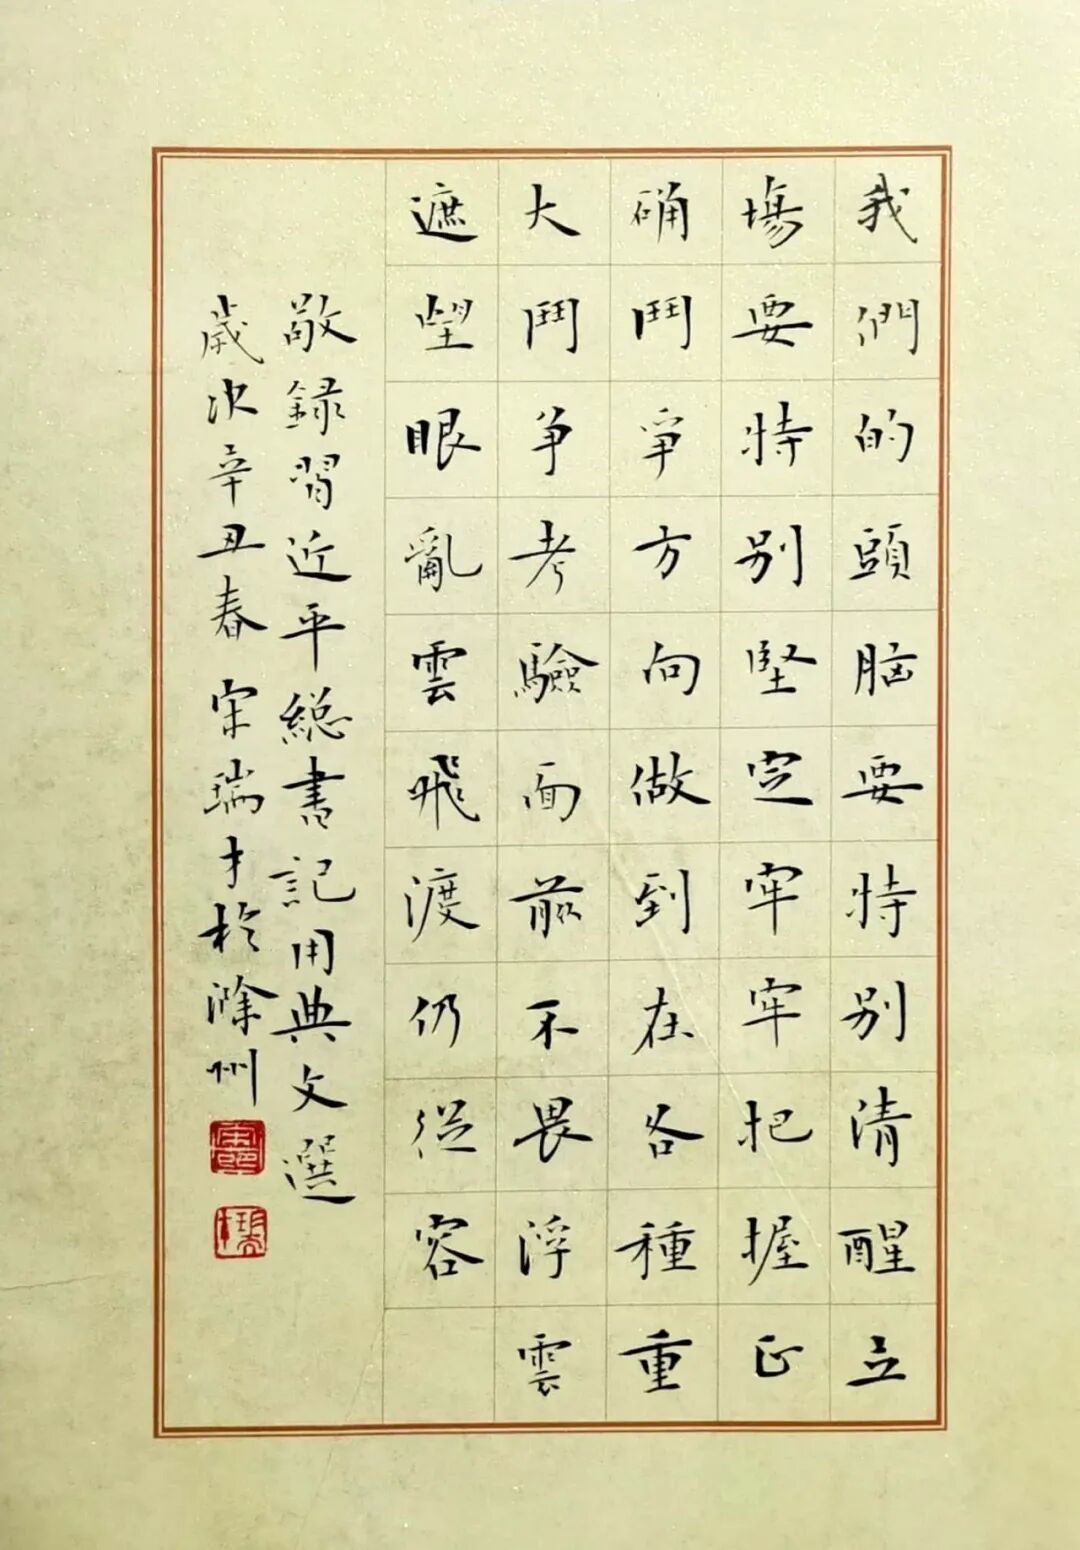 我們的頭脑要特别清醒立
場要特别堅定牢牢把握正
确鬥爭方向做到在各種重
大鬥争考驗面前不畏浮雲
遮望眼亂雲飛渡仍從容
敬録習近平總書記用典文選
歲次辛丑春宋瑞才於滁州